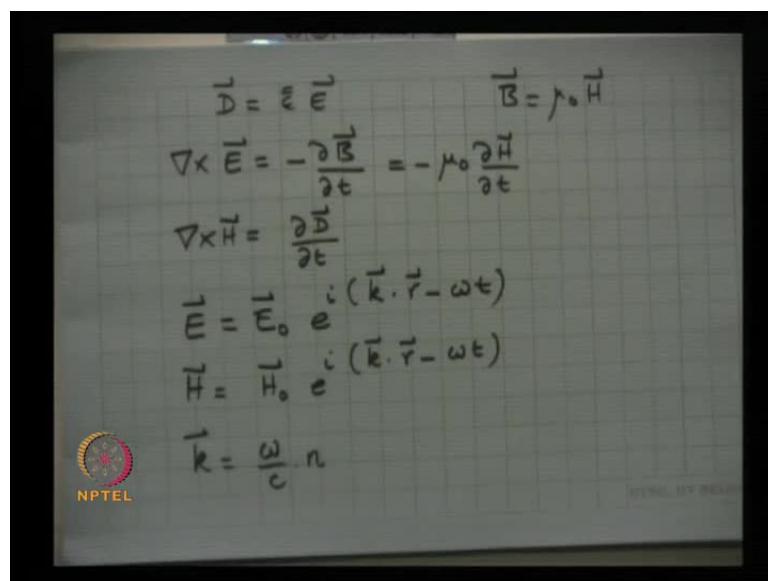 D⃗ = ε̄ E⃗    B⃗ = μ₀ H⃗
∇× E⃗ = - ∂B⃗/∂t = - μ₀ ∂H⃗/∂t
∇× H⃗ = ∂D⃗/∂t
E⃗ = E⃗₀ e^{i(k⃗·r⃗ - ωt)}
H⃗ = H⃗₀ e^{i(k⃗·r⃗ - ωt)}
k⃗ = ω/c · n
NPTEL